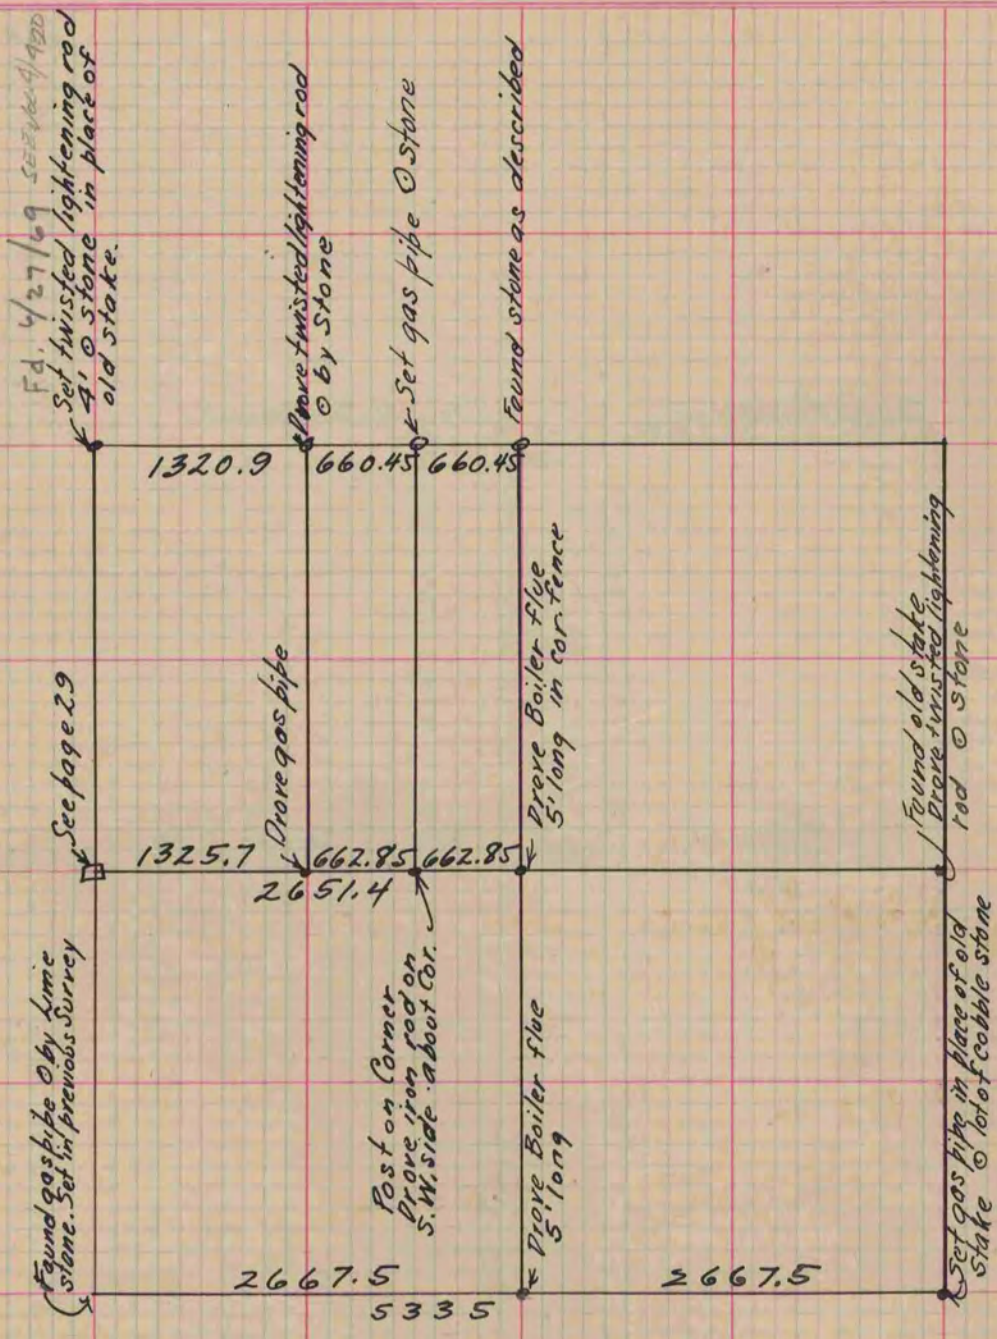 Fd. 4/27/69
Set twisted lightening rod
4' ⊙ stone in place of
old stake.
Drove twisted lightening rod
⊙ by Stone
Set gas pipe ⊙ stone
Found stone as described
1320.9
660.45
660.45
See page 29
Drove gas pipe
Drove Boiler flue
5' long in cor. fence
Found old stake
Drove twisted lightening
rod ⊙ stone
1325.7
662.85
662.85
2651.4
Found gas pipe ⊙ by Lime
stone. Set in previous Survey
Post on Corner
Drove iron rod on
S.W. side about Cor.
Drove Boiler flue
5' long
Set gas pipe in place of old
Stake ⊙ lot of cobble stone
2667.5
2667.5
5335